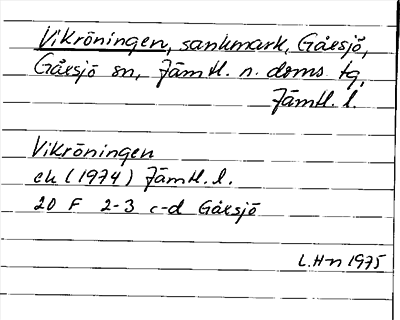 Vikröningen, sankmark, Gåxsjö,
Gåxsjö sn, Jämtl. n. doms. tg,
Jämtl. l.
Vikröningen
ek (1974) Jämtl. l.
20 F 2-3 c-d Gåxsjö
L.H-n 1975